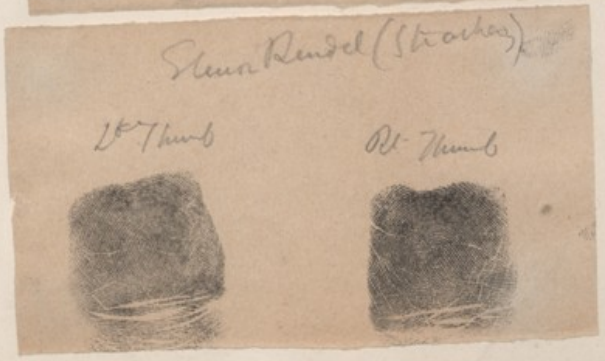 Elinor Rendel (Strachey)
Lt Thumb
Rt Thumb